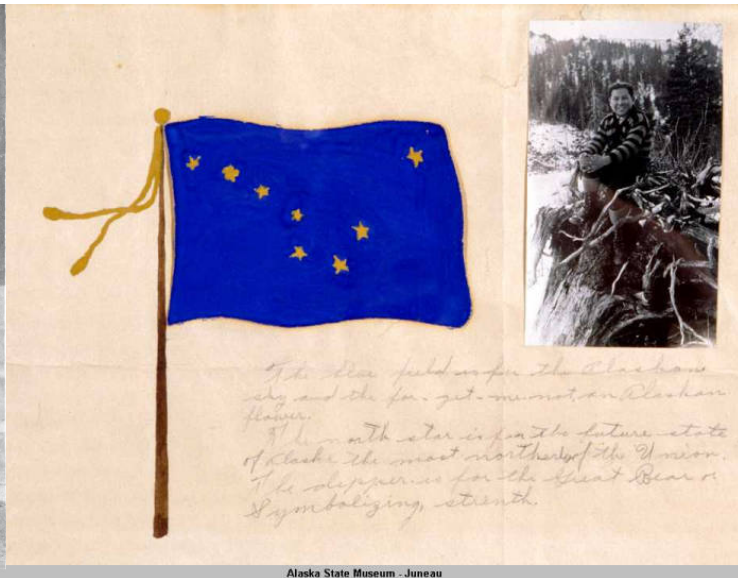 The blue field is for the Alaskan
sky and the for-get-me-not, an Alaskan
flower.
The north star is for the future state
of Alaska the most northerly of the Union.
The dipper is for the Great Bear
Symbolizing strenth.
Alaska State Museum - Juneau